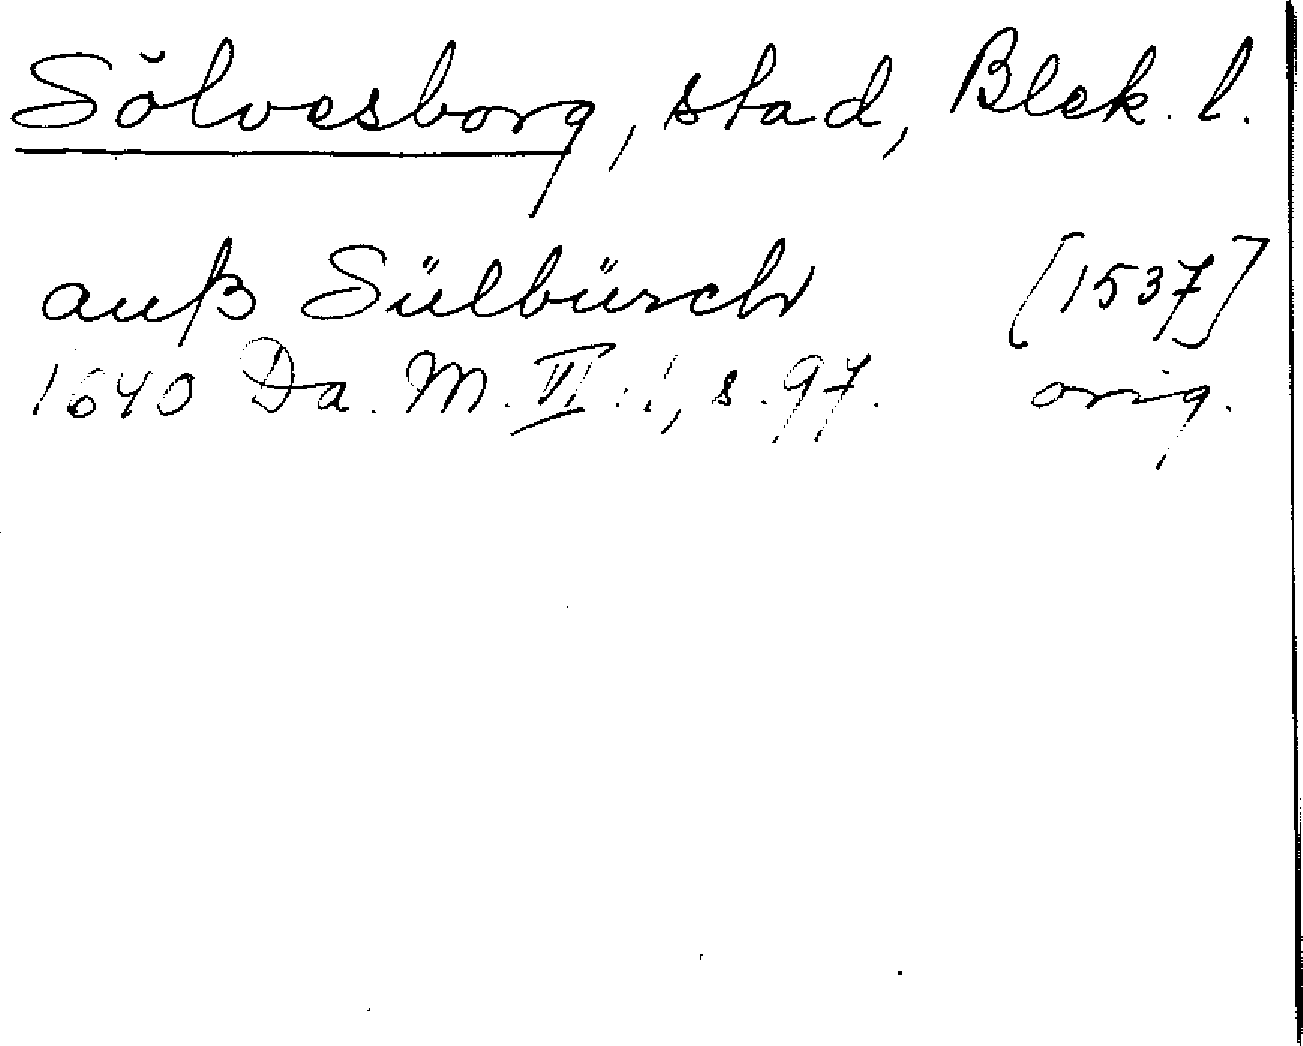 Sölvesborg, stad, Blek. l.
auß Sülbürch [1537]
1640 Da. M. VI:1, s. 97. orig.